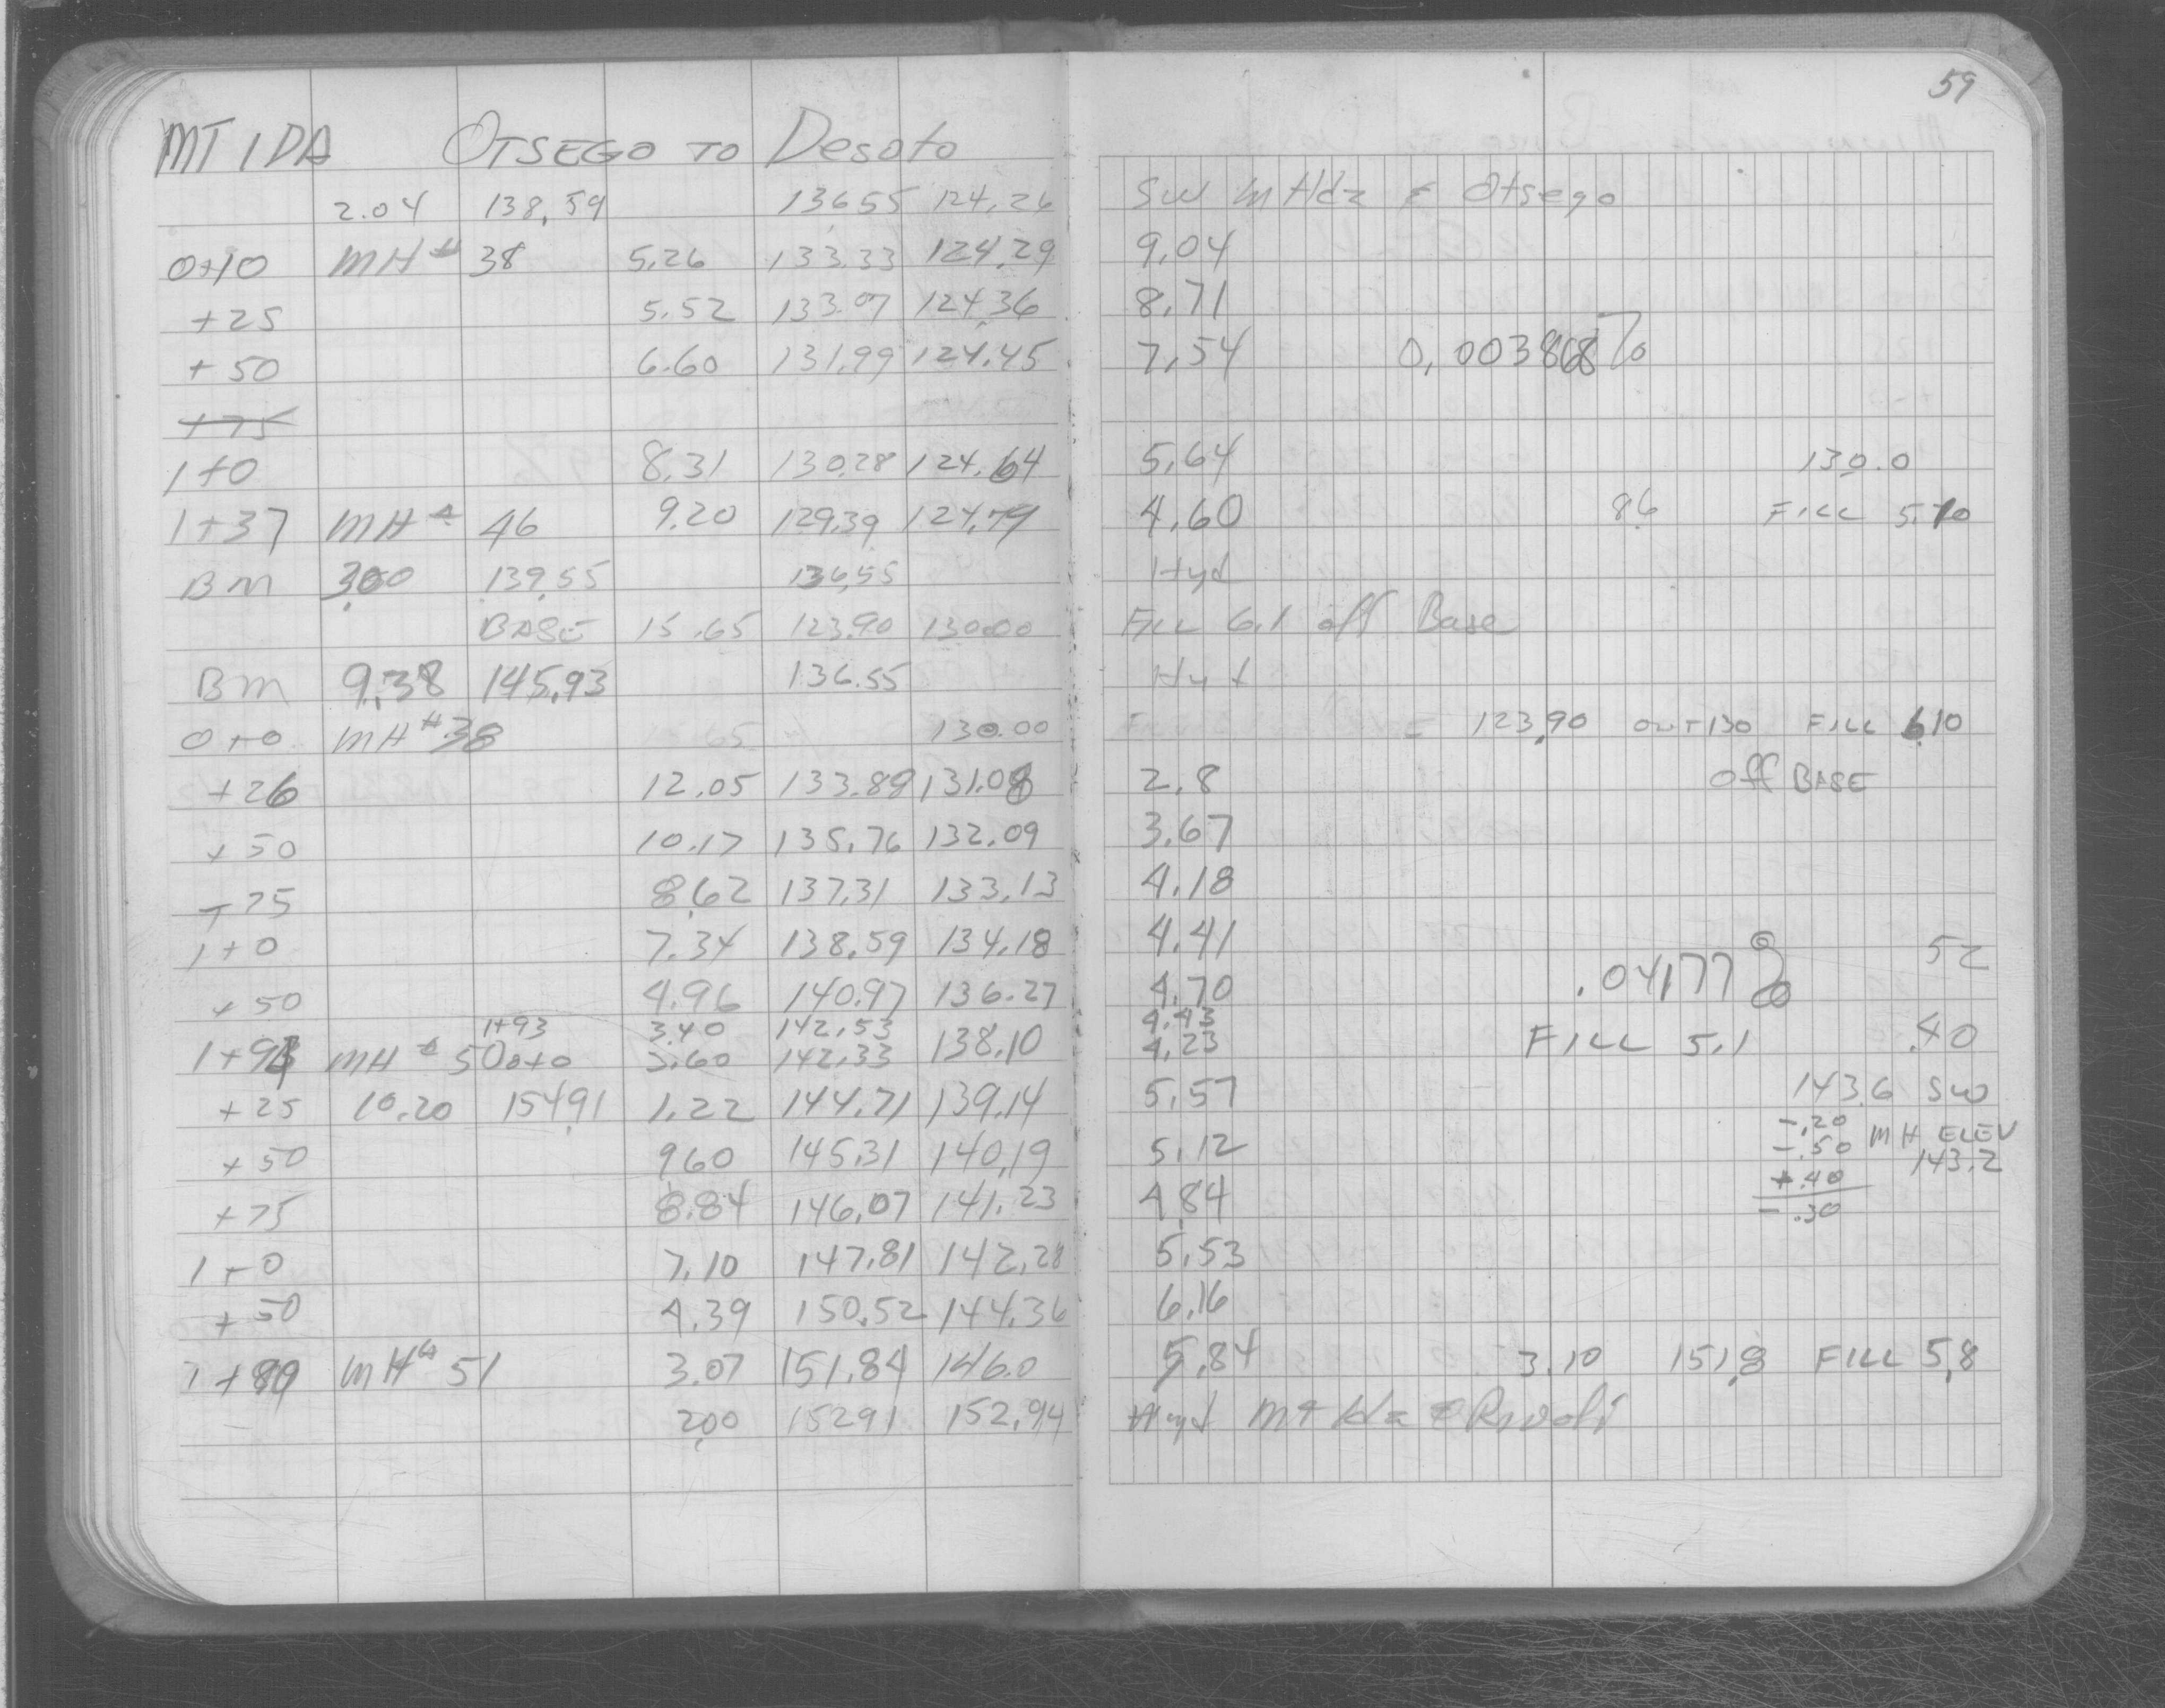 59
MT IDA OTSEGO TO Desoto
2.04 138.59 136.55 124.26 SW Mt Ida & Otsego
0+10 MH# 38 5.26 133.33 124.29 9.04
+25 5.52 133.07 124.36 8.71
+50 6.60 131.99 124.45 7.54 0.003868%
+75
1+0 8.31 130.28 124.64 5.64 130.0
1+37 MH# 46 9.20 129.39 124.79 4.60 86 FILL 5.10
BM 3.00 139.55 136.55 Hyd
BASE 15.65 123.90 130.00 FILL 6.1 off Base
BM 9.38 145.93 136.55 Hyd
0+0 MH# 38 130.00 123.90 OUT 130 FILL 6.10
+26 12.05 133.89 131.08 2.8 off BASE
+50 10.17 135.76 132.09 3.67
+75 8.62 137.31 133.13 4.18
1+0 7.34 138.59 134.18 4.41 52
+50 4.96 140.97 136.27 4.70 .04177%
1+93 3.40 142.53 4.43
1+94 MH# 50 0+0 3.60 142.33 138.10 4.23 FILL 5.1 .40
+25 10.20 154.91 1.22 144.71 139.14 5.57 143.6 SW
-.20
+50 9.60 145.31 140.19 5.12 -.50 MH ELEV
143.2
+75 8.84 146.07 141.23 4.84 +.40
-.30
1+0 7.10 147.81 142.28 5.53
+50 4.39 150.52 144.36 6.16
1+89 MH# 51 3.07 151.84 146.0 5.84 3.10 151.8 FILL 5.8
2.00 152.91 152.94 Hyd Mt Ida & Rivoli